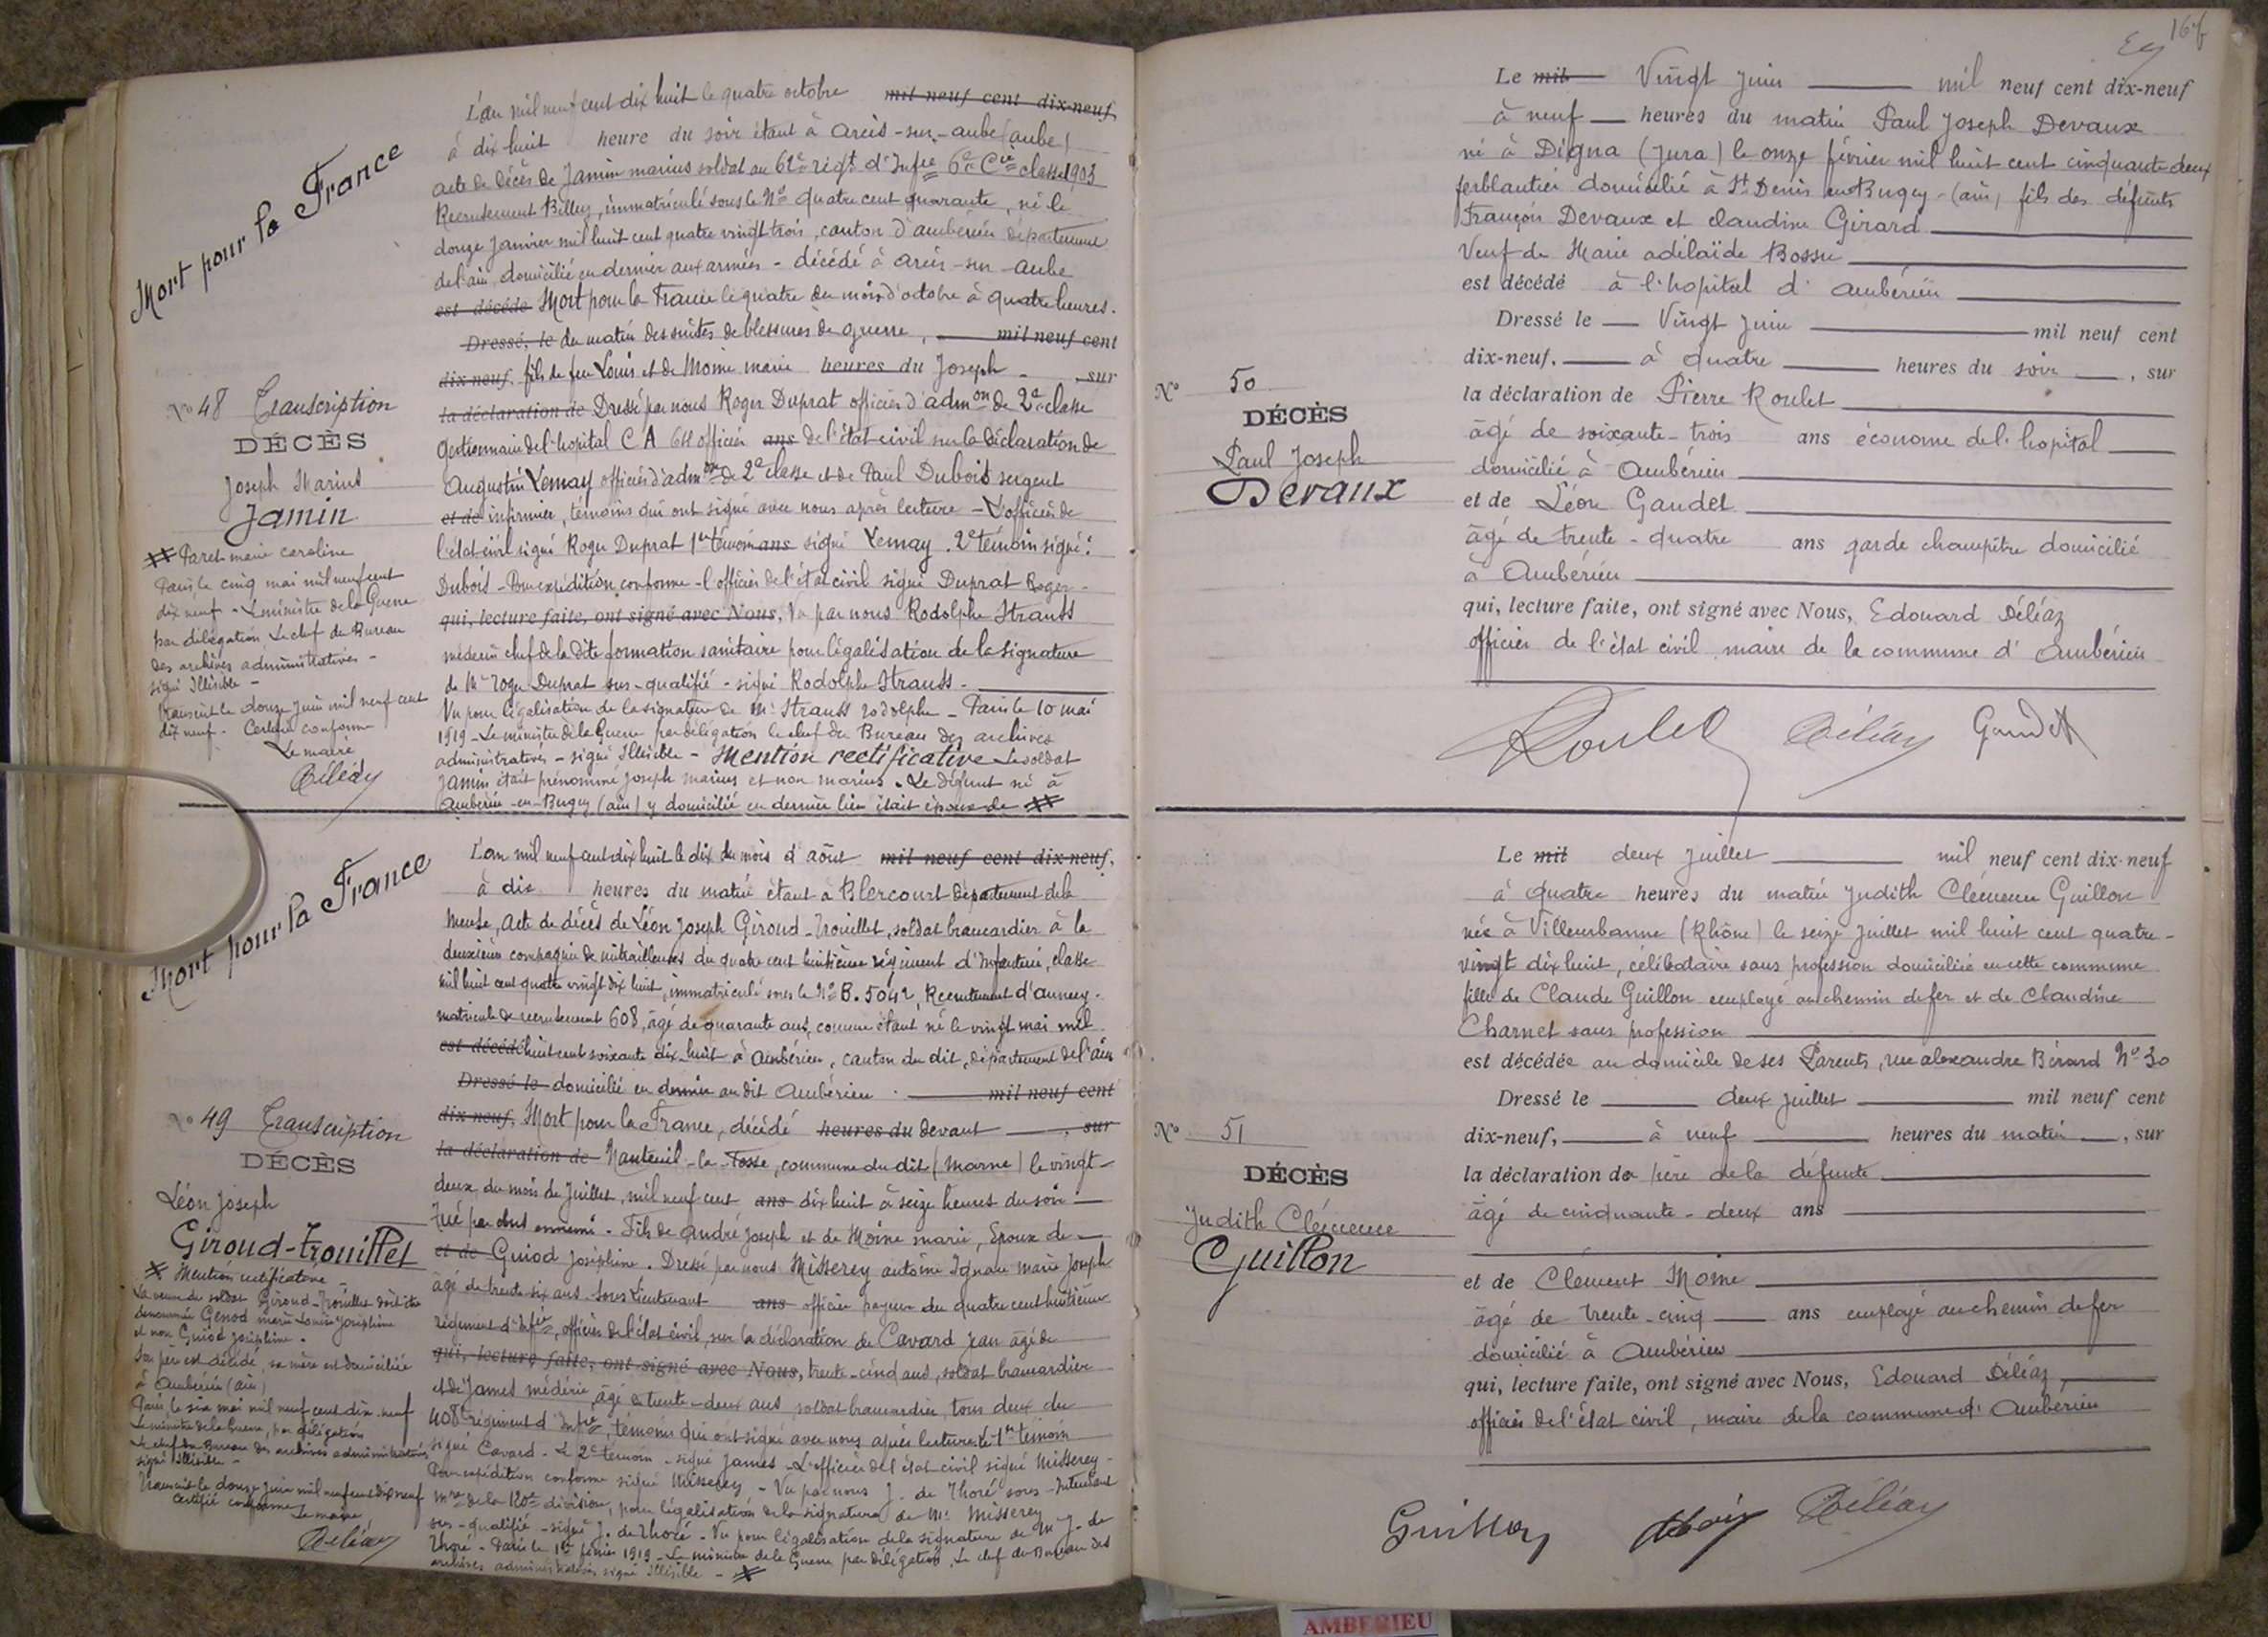 Mort pour la France
N° 48 Transcription
DÉCÈS
Joseph Marius
Jamin
Paret marie caroline
Paris le cinq mai mil neuf cent
dix neuf - Le ministre de la Guerre
par délégation Le chef du Bureau
des archives administratives -
signé Illisible -
Transcrit le douze juin mil neuf cent
dix neuf - Certifié conforme
Le maire
Déléaz
L'an mil neuf cent dix huit le quatre octobre mil neuf cent dix-neuf,
à dix huit heure du soir étant à arcis-sur-aube (aube)
acte de décès de Jamin marius soldat au 61e régt d'Infie 6e Cie classe 1903
Recrutement Belley, immatriculé sous le N° quatre cent quarante, né le
douze Janvier mil huit cent quatre vingt trois, canton d'ambérieu département
de l'ain domicilié en dernier aux armées - décédé à arcis-sur-aube
est décédé Mort pour la France le quatre du mois d'octobre à quatre heures.
Dressé, le du matin des suites de blessures de guerre, mil neuf cent
dix-neuf, fils de feu Louis et de Moine marie heures du Joseph - , sur
la déclaration de Dressé par nous Roger Duprat officier d'admon de 2e classe
gestionnaire de l'hopital C A 64 officier ans de l'état civil sur la déclaration de
Augustin Lemay officier d'admon de 2e classe et de Paul Dubois sergent
et de infirmier, témoins qui ont signé avec nous après lecture - L'officier de
l'état civil signé Roger Duprat 1er témoin ans signé Lemay. 2e témoin signé:
Dubois - Pour expédition conforme - l'officier de l'état civil signé Duprat Roger -
qui, lecture faite, ont signé avec Nous, Vu par nous Rodolphe Strauss
médecin chef de la dite formation sanitaire pour légalisation de la signature
de Mr Roger Duprat sus-qualifié - signé Rodolphe Strauss -
Vu pour légalisation de la signature de Mr Strauss rodolphe - Paris le 10 mai
1919 - Le ministre de la Guerre par délégation le chef du Bureau des archives
administratives - signé Illisible - Mention rectificative Le soldat
Jamin était prénommé Joseph marius et non marius. Le défunt né à
Ambérieu-en-Bugey (ain) y domicilié en dernier lieu était époux de
Mort pour la France
N° 49 Transcription
DÉCÈS
Léon Joseph
Giroud-Trouillet
Mention rectificative -
La veuve du soldat Giroud-Trouillet doit être
dénommée Genod marie Louise Joséphine
et non Guiod Joséphine.
Son père est décédé, sa mère est domiciliée
à Ambérieu (ain)
Paris le six mai mil neuf cent dix-neuf
Le ministre de la Guerre, par délégation
Le chef du Bureau des archives administratives
signé Illisible -
Transcrit le douze juin mil neuf cent dix neuf
Certifié conforme
Le maire
Déléaz
L'an mil neuf cent dix huit le dix du mois d'août mil neuf cent dix-neuf,
à dix heures du matin étant à Blercourt département de la
Meuse, acte de décès de Léon Joseph Giroud-Trouillet, soldat brancardier à la
deuxième compagnie de mitrailleuses du quatre cent huitième régiment d'Infanterie, classe
mil huit cent quatre vingt dix huit, immatriculé sous le N° B. 5042, Recrutement d'annecy -
matricule de recrutement 608, âgé de quarante ans, comme étant né le vingt mai mil
est décédé huit cent soixante dix-huit à Ambérieu, canton du dit, département de l'ain
Dressé le domicilié en dernier au dit Ambérieu - mil neuf cent
dix-neuf, Mort pour la France, décédé heures du devant , sur
la déclaration de Nanteuil-la-Fosse, commune du dit (Marne) le vingt-
deux du mois de Juillet, mil neuf cent ans dix huit à seize heures du soir -
Tué par obus ennemi. Fils de André Joseph et de Moine marie, Epoux de -
et de Guiod Joséphine. Dressé par nous Misserey antoine Ignace marie Joseph
âgé de trente six ans Sous Lieutenant ans officier payeur du quatre cent huitième
régiment d'Infie, officier de l'état civil, sur la déclaration de Cavard Jean âgé de
qui, lecture faite, ont signé avec Nous, trente-cinq ans, soldat brancardier
et de James médéric, âgé de trente-deux ans, soldat brancardier, tous deux du
408e régiment d'Infie, témoins qui ont signé avec nous après lecture. Le 1er témoin
signé Cavard - Le 2e témoin - signé James - L'officier de l'état civil signé Misserey -
Pour expédition conforme signé Misserey - Vu par nous J. de Thoré sous-Intendant
mre de la 120e division, pour légalisation de la signature de Mr Misserey
sus-qualifié - signé J. de Thoré - Vu pour légalisation de la signature de Mr J. de
Thoré - Paris le 1er février 1919 - Le ministre de la Guerre par délégation, Le chef du Bureau des
archives administratives signé Illisible -
N° 50
DÉCÈS
Paul Joseph
Devaux
Le mil Vingt Juin mil neuf cent dix-neuf
à neuf heures du matin Paul Joseph Devaux
né à Digna (Jura) le onze février mil huit cent cinquante deux
ferblantier domicilié à St Denis en Bugey - (ain) fils des défunts
François Devaux et Claudine Girard
Veuf de Marie adélaïde Bossu
est décédé à l'hopital d'Ambérieu
Dressé le Vingt Juin mil neuf cent
dix-neuf, à quatre heures du soir , sur
la déclaration de Pierre Roulet
âgé de soixante-trois ans économe de l'hopital
domicilié à Ambérieu
et de Léon Gaudet
âgé de trente-quatre ans garde champêtre domicilié
à Ambérieu
qui, lecture faite, ont signé avec Nous, Edouard Déléaz
officier de l'état civil maire de la commune d'Ambérieu
Roulet Déléaz Gaudet
N° 51
DÉCÈS
Judith Clémence
Guillon
Le mil deux Juillet mil neuf cent dix-neuf
à quatre heures du matin Judith Clémence Guillon
née à Villeurbanne (Rhône) le seize Juillet mil huit cent quatre-
vingt dix huit, célibataire sans profession domiciliée en cette commune
fille de Claude Guillon employé au chemin de fer et de Claudine
Charnet sans profession
est décédée au domicile de ses Parents, rue alexandre Bérard N° 30
Dressé le deux Juillet mil neuf cent
dix-neuf, à neuf heures du matin , sur
la déclaration du père de la défunte
âgé de cinquante-deux ans
et de Clément Moine
âgé de trente-cinq ans employé au chemin de fer
domicilié à Ambérieu
qui, lecture faite, ont signé avec Nous, Edouard Déléaz,
officier de l'état civil, maire de la commune d'Ambérieu
Guillon Déléaz
AMBERIEU